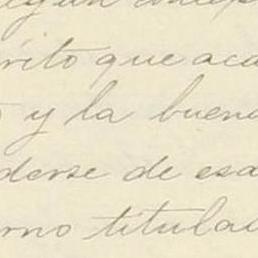 rito que aca
y la buena
derse de esa
rno titula